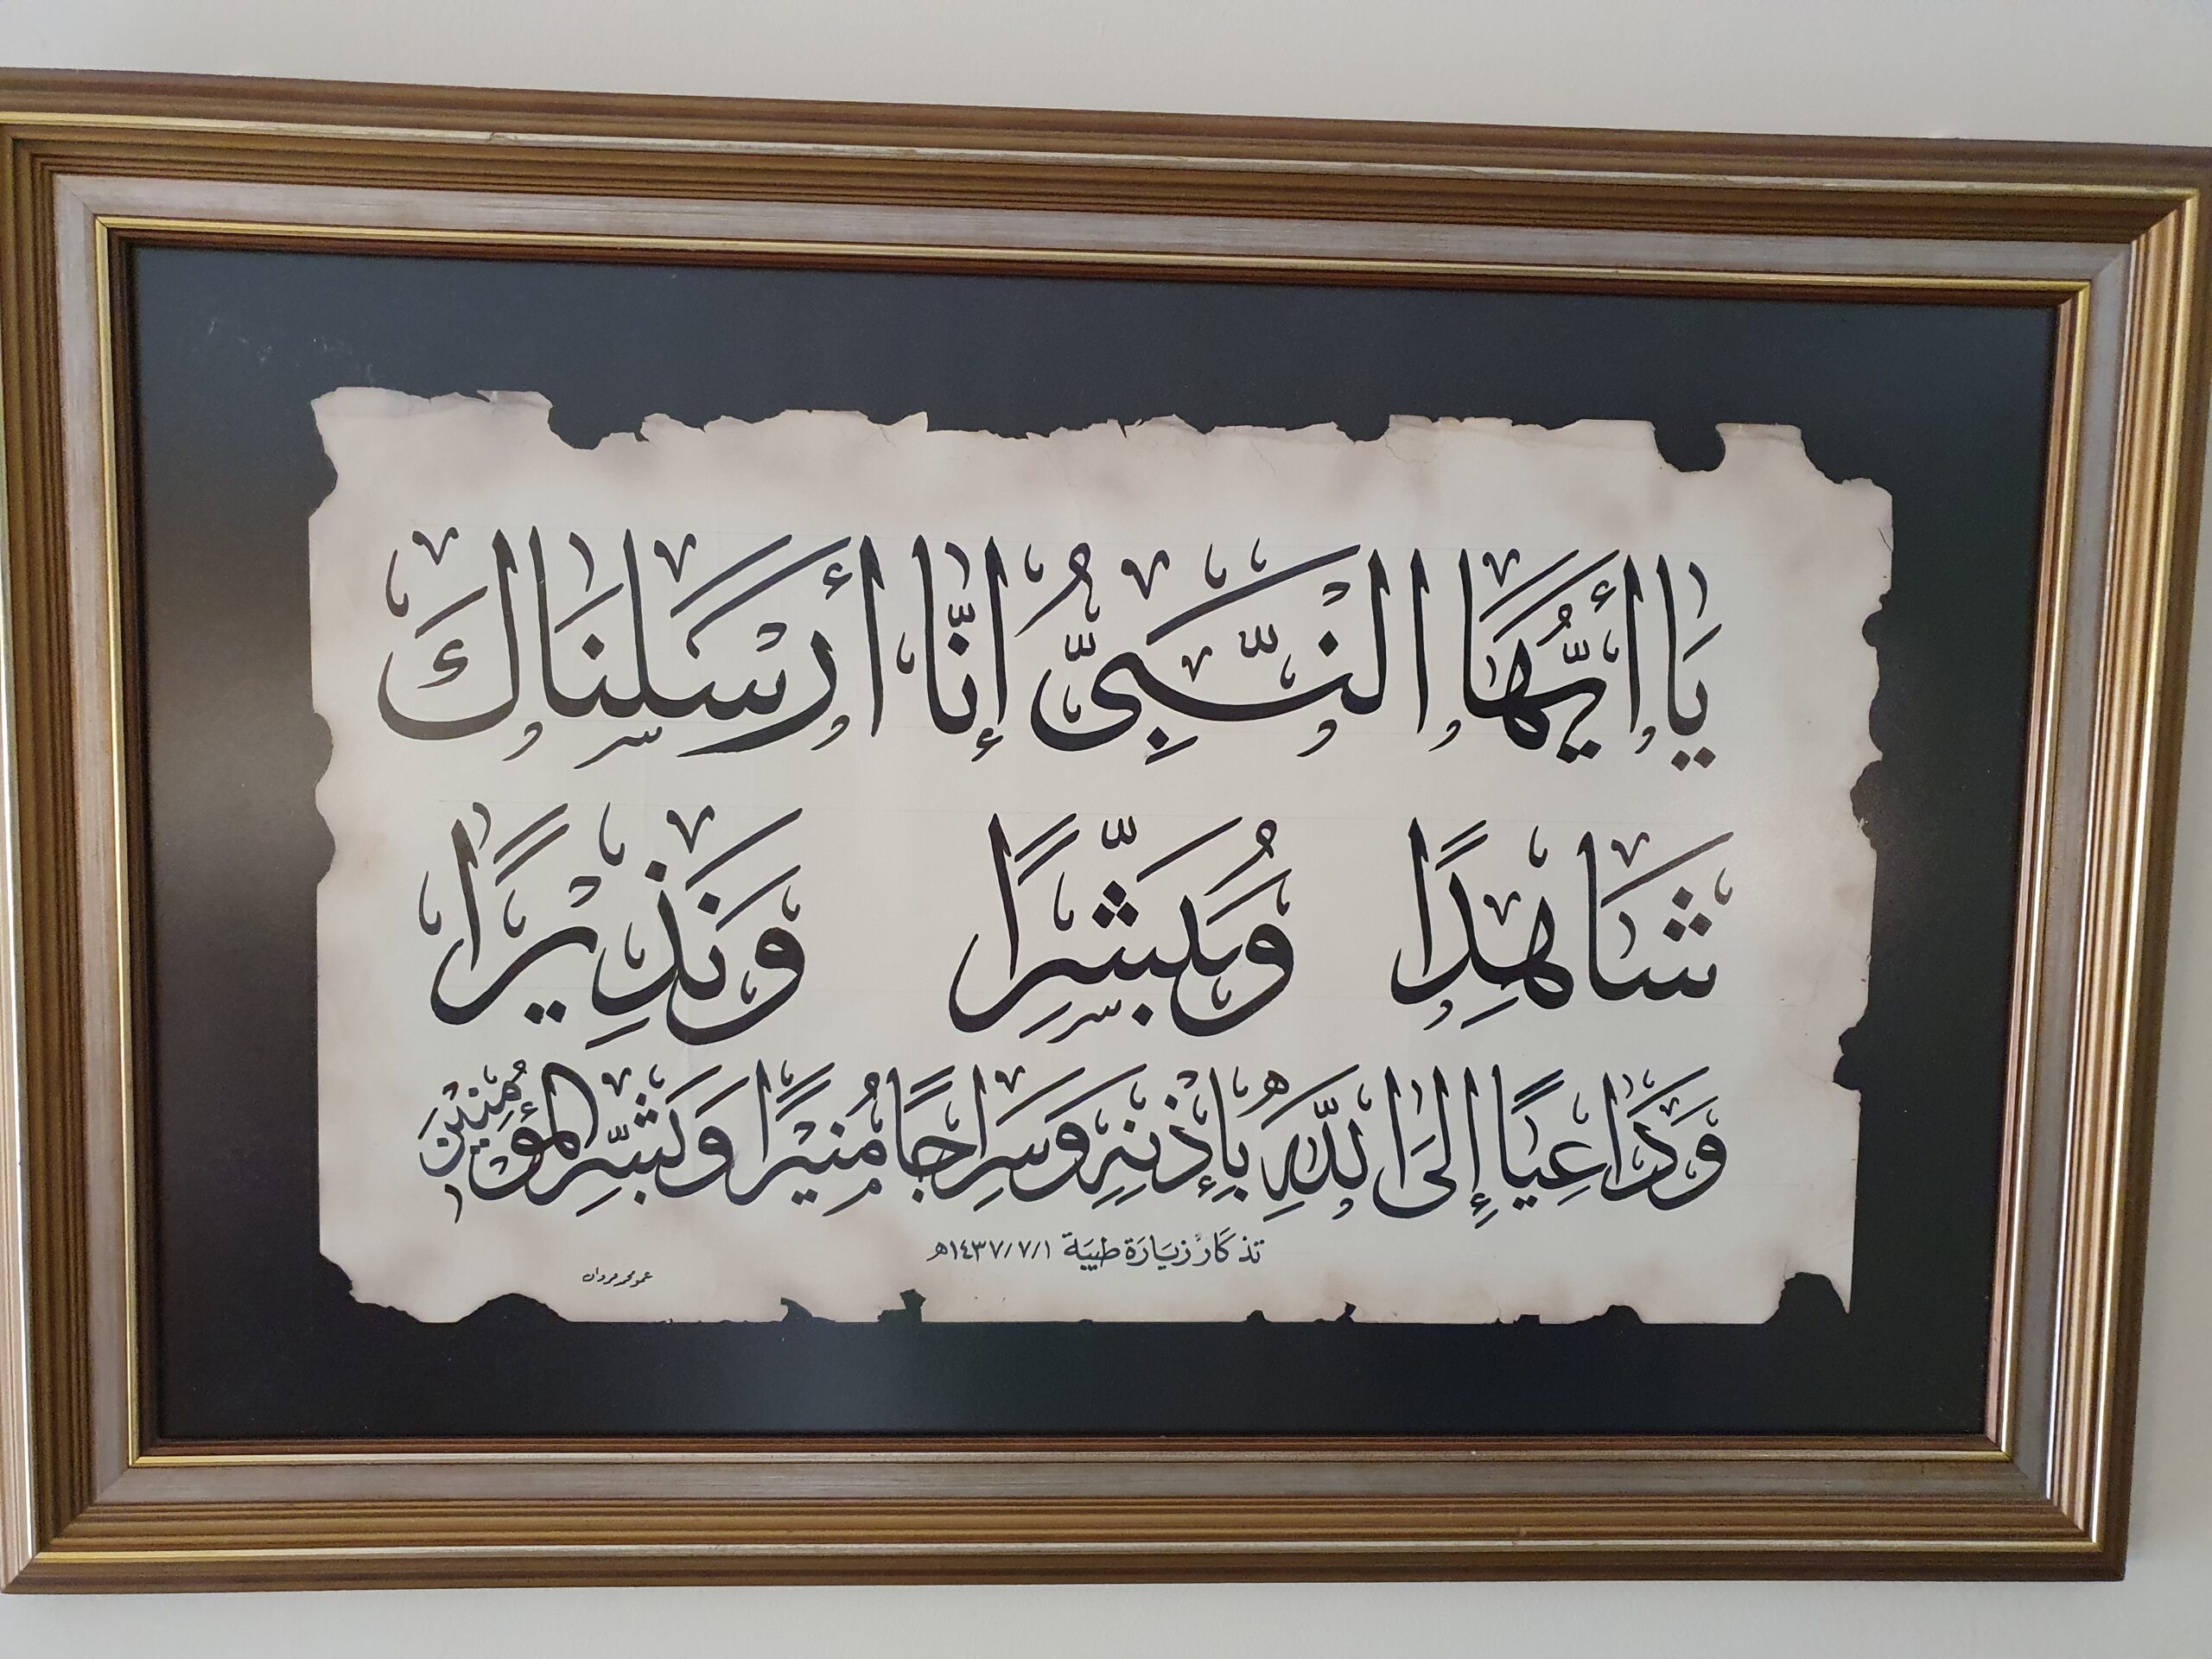 يَا أَيُّهَا النَّبِيُّ إِنَّا أَرْسَلْنَاكَ
شَاهِدًا وَمُبَشِّرًا وَنَذِيرًا
وَدَاعِيًا إِلَى اللَّهِ بِإِذْنِهِ وَسِرَاجًا مُنِيرًا وَبَشِّرِ الْمُؤْمِنِينَ
تذكار زيارة طيبة ١٤٣٧/٧/١هـ